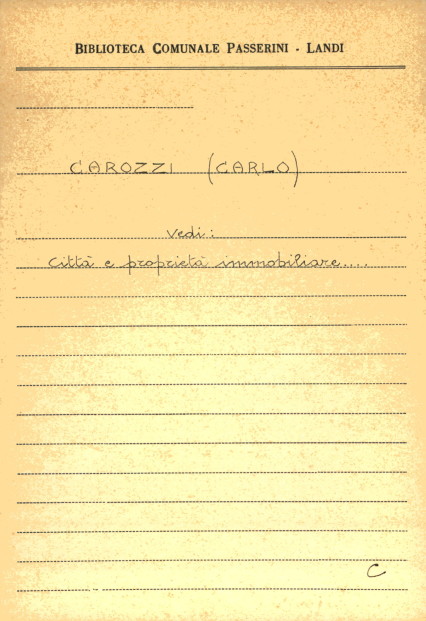 BIBLIOTECA COMUNALE PASSERINI - LANDI
CAROZZI (CARLO)
Vedi:
Città e proprietà immobiliare....
C